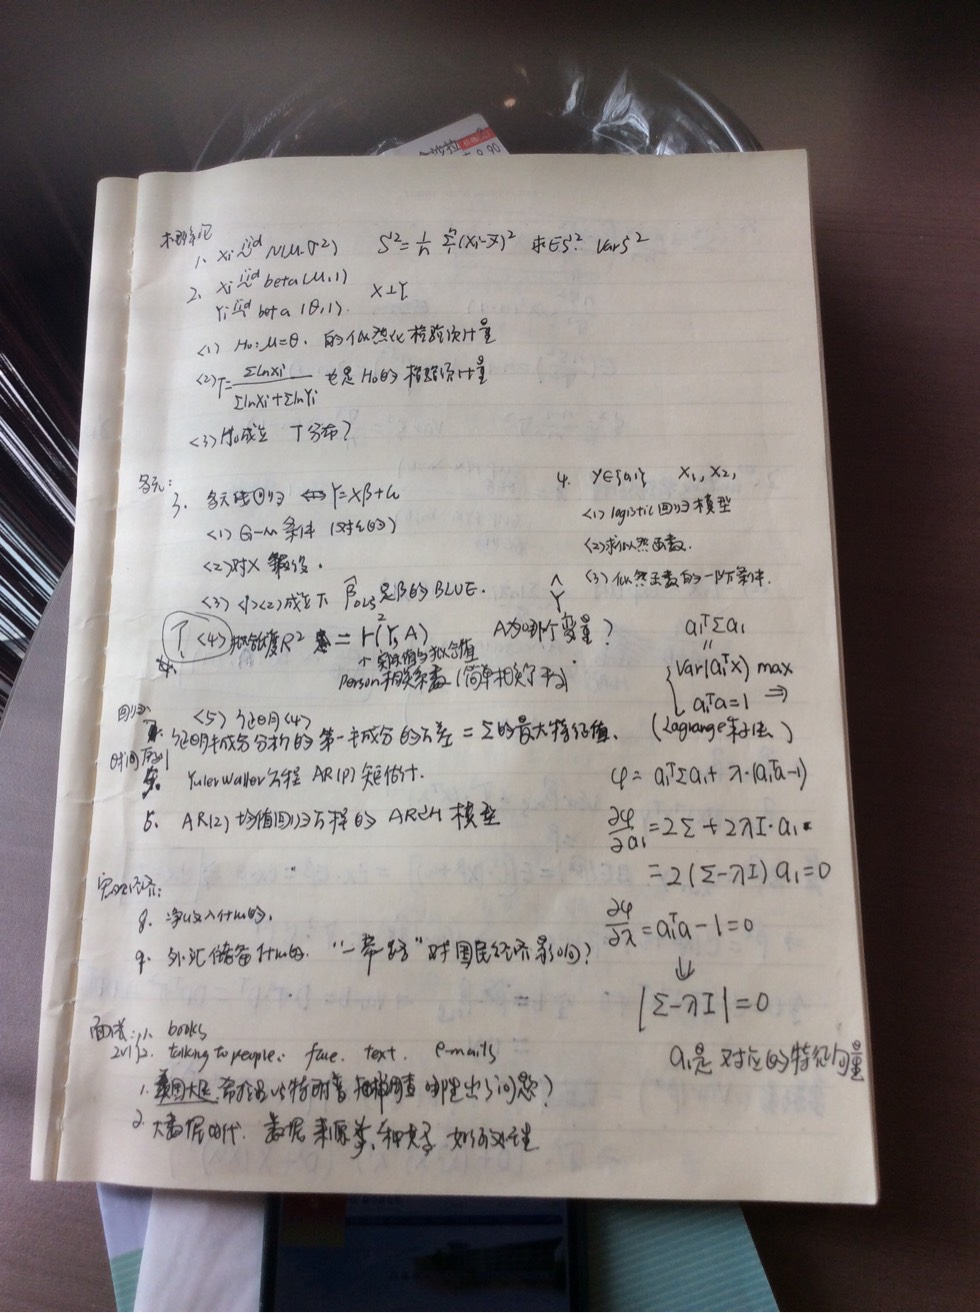 概率论
1. Xi iid N(μ,σ²) S²=1/n Σ(Xi-X̄)² 求ES², VarS²
2. Xi iid beta(μ,1)
Yi iid beta(θ,1). X⊥Y
<1> H₀:μ=θ. 的似然比检验统计量
<2> T=ΣlnXi/(ΣlnXi+ΣlnYi) 也是H₀的检验统计量
<3> H₀成立 T分布?
多元:
3. 多元线性回归 ⇔ Y=Xβ+u
<1> G-M 条件 (对ε的)
<2> 对X
<3> <1><2>成立下 β̂OLS是β的BLUE.
<4> 拟合优度R² = r²(Y, A) A为哪个变量? Ŷ
↑ 实际值与拟合值
Person相关系数 (简单相关了平方)
<5> 证明<4>
4. Y∈{0,1} X₁, X₂,
<1> logistic回归模型
<2> 求似然函数.
<3> 似然函数的一阶条件.
回归
证明主成分分析的第一主成分的方差 = Σ的最大特征值.
时间序列
Yuler Walker方程 AR(P)矩估计.
5. AR(2)均值回归方程的 ARCH 模型
a₁ᵀΣa₁
=
{ Var(a₁ᵀX) max
a₁ᵀa=1 ⇒
(Lagrange乘子法)
φ= a₁ᵀΣa₁+ λ·(a₁ᵀa-1)
∂φ/∂a₁ =2Σ+2λI·a₁
=2(Σ-λI)a₁=0
∂φ/∂λ =a₁ᵀa-1=0
↓
|Σ-λI|=0
a₁是对应的特征向量
宏观经济:
8. 净收入什么的,
9. 外汇储备什么的. "一带一路"对国民经济影响?
面试: 1. books
2. talking to people. face. text. e-mails
1. 美国大选. 希拉里以特朗普 抽样调查 哪里出了问题?
2. 大数据时代. 数据来源 多种